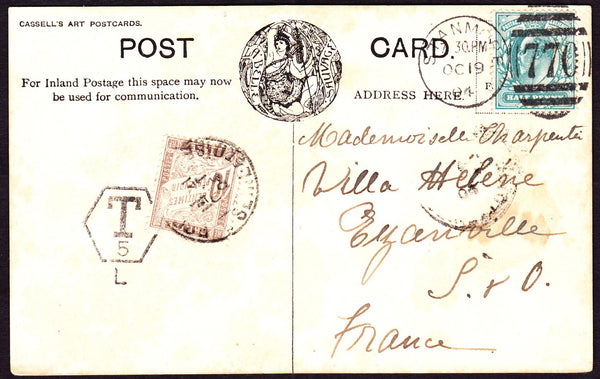 CASSELL'S ART POSTCARDS.
POST CARD.
For Inland Postage this space may now
be used for communication.
ADDRESS HERE.
30.PM
OC 19
04
770
HALF PENNY
Mademoiselle Charpentier
Villa Hélène
Ezanville
S. & O.
France
CENTIMES
T
5
L